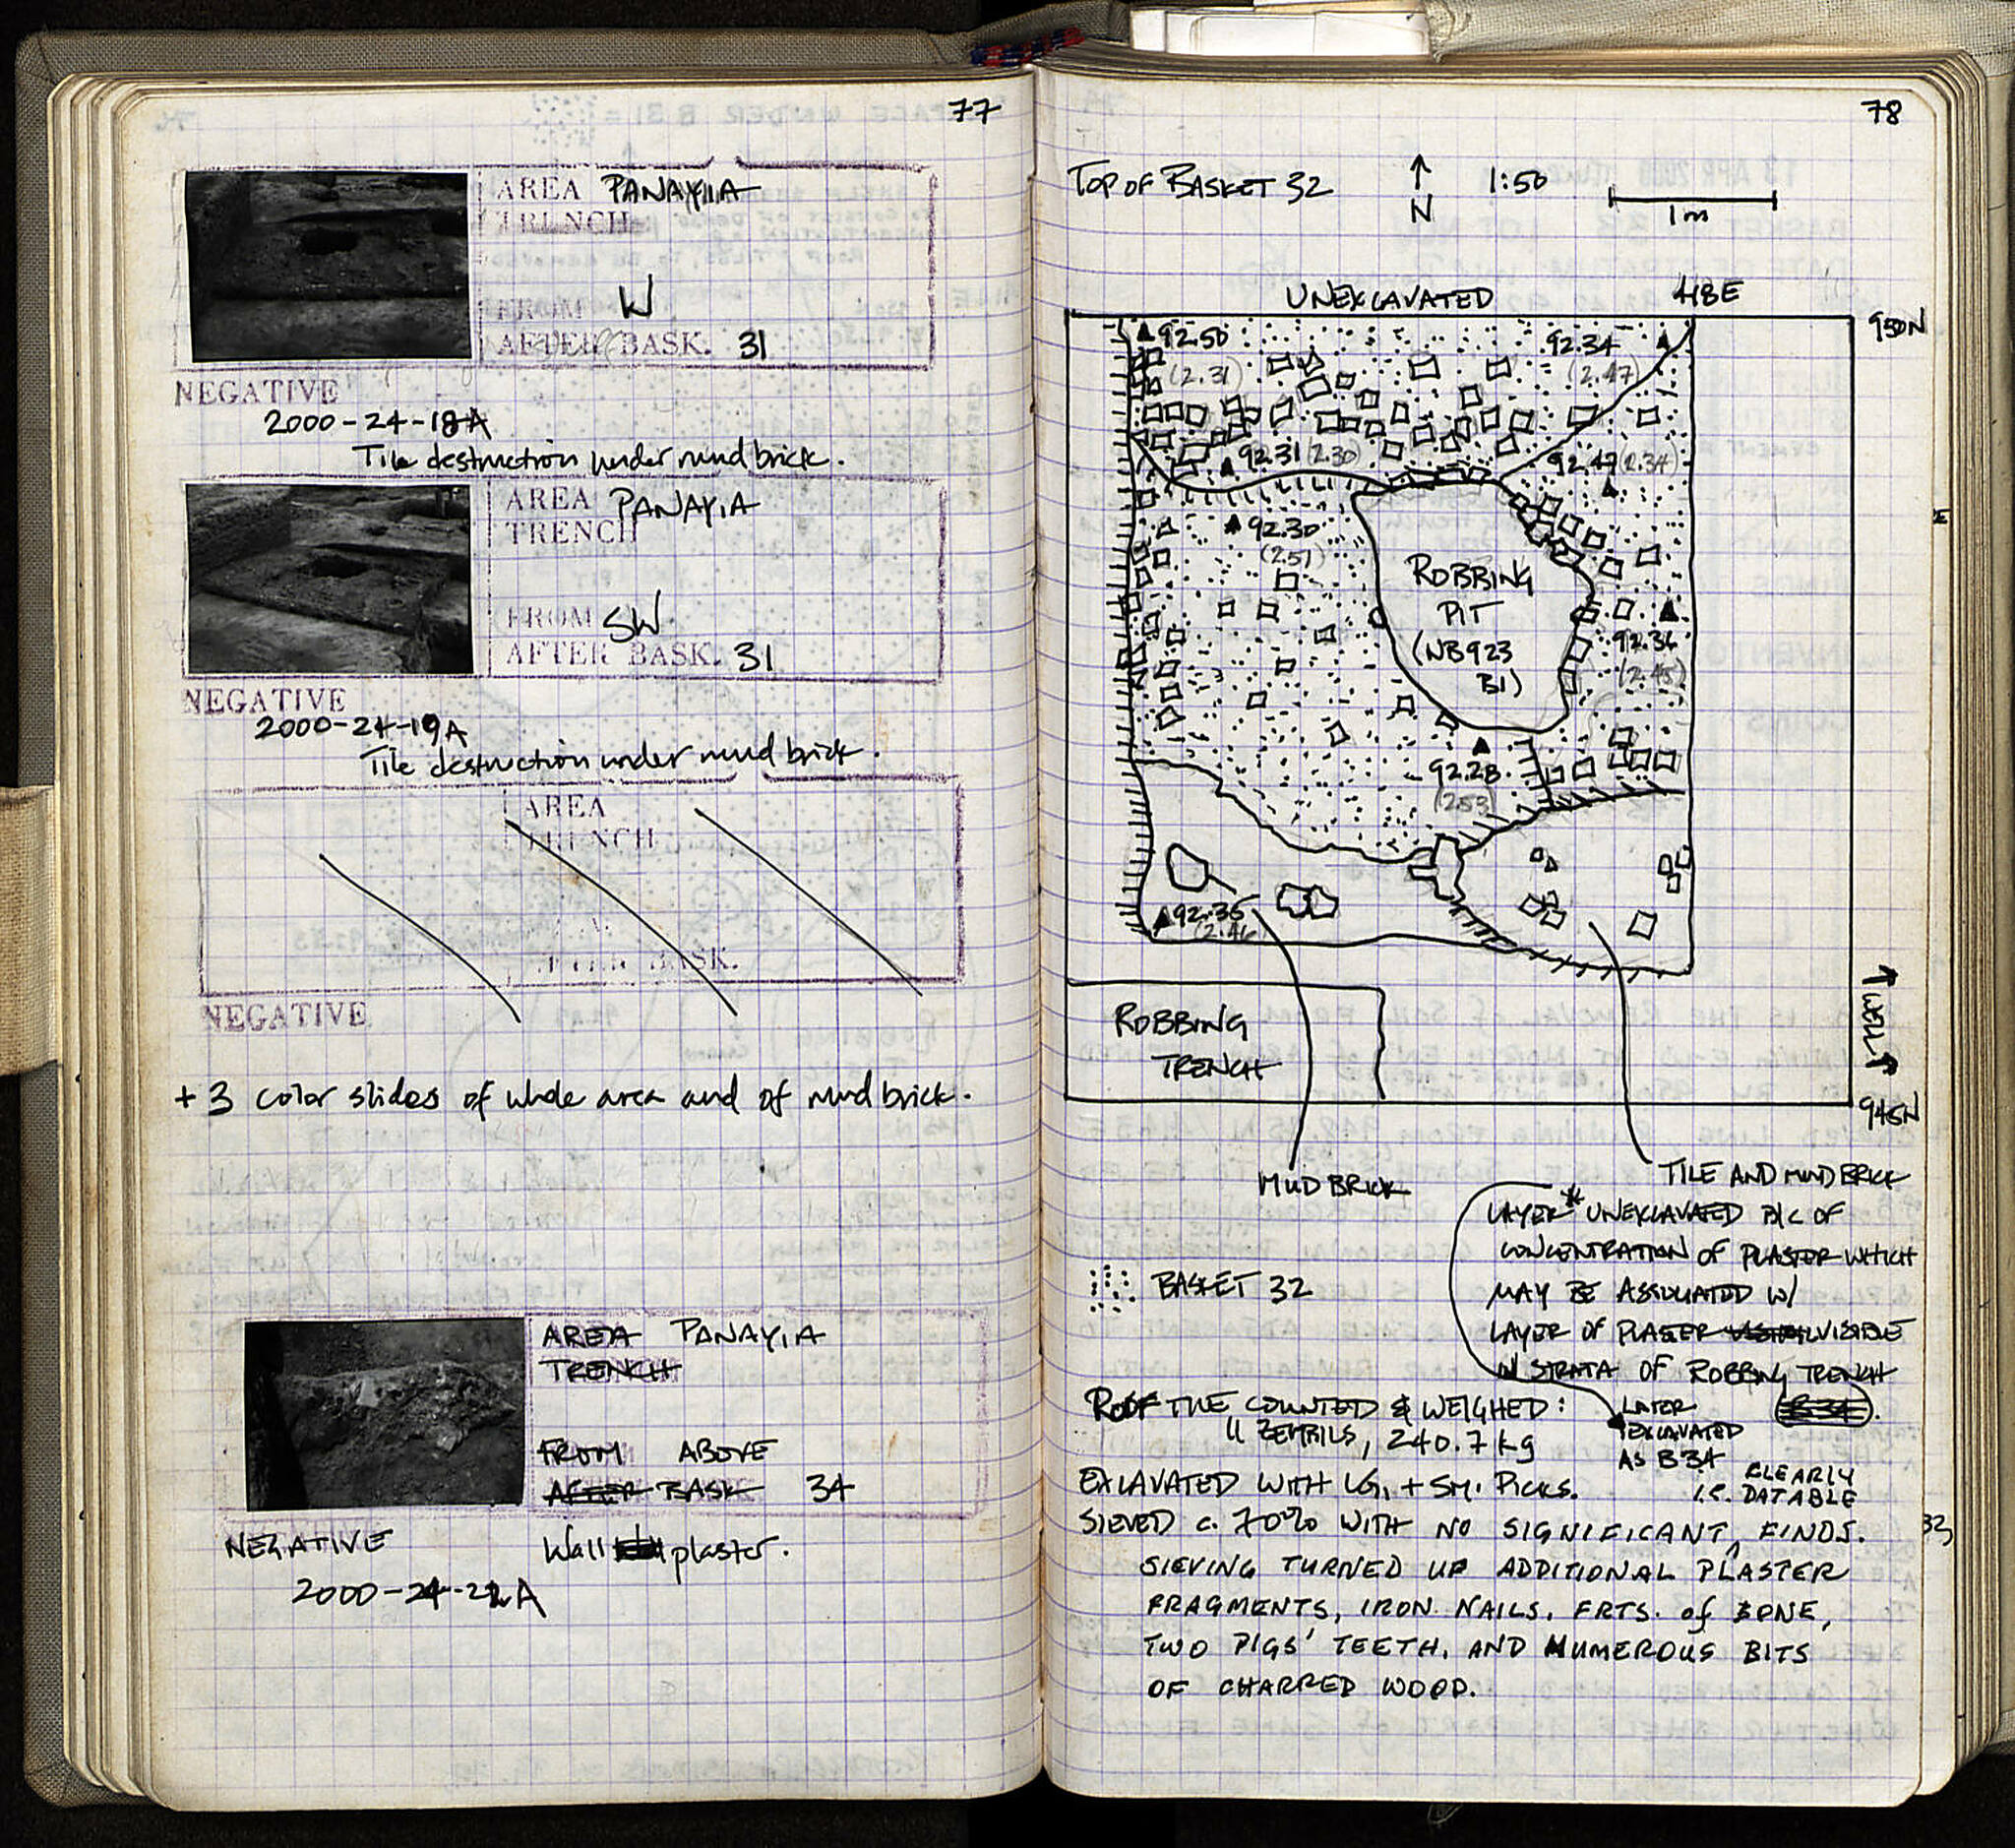 77
AREA PANAYIA
TRENCH
FROM W
AFTER BASK. 31
NEGATIVE
2000-24-18A
Tile destruction under mud brick.
AREA PANAYIA
TRENCH
FROM SW
AFTER BASK. 31
NEGATIVE
2000-24-19A
Tile destruction under mud brick.
AREA
TRENCH
AFTER BASK.
NEGATIVE
+ 3 color slides of whole area and of mud brick.
AREA PANAYIA
TRENCH
FROM ABOVE
AFTER BASK 34
NEGATIVE
Wall plaster.
2000-24-22A
78
TOP OF BASKET 32
N
1:50
1m
UNEXCAVATED
418E
950N
92.50
(2.31)
92.34
(2.47)
92.31 (2.30)
92.47 (2.34)
92.30
(2.51)
ROBBING
PIT
(NB923
B1)
92.36
(2.45)
92.28
(2.53)
92.35
(2.46)
ROBBING
TRENCH
WELL
945N
MUD BRICK
TILE AND MUD BRICK
LAYER* UNEXCAVATED B/C OF
CONCENTRATION OF PLASTER WHICH
MAY BE ASSOCIATED W/
LAYER OF PLASTER VISIBLE
IN STRATA OF ROBBING TRENCH
(B 34).
BASKET 32
LATER
EXCAVATED
AS B 34
ROOF TILE COUNTED & WEIGHED:
11 ZEMBILS, 240.7 kg
EXCAVATED WITH LG. + SM. PICKS.
CLEARLY
I.E. DATABLE
SIEVED C. 70% WITH NO SIGNIFICANT ^ FINDS.
SIEVING TURNED UP ADDITIONAL PLASTER
FRAGMENTS, IRON NAILS, FRTS. of BONE,
TWO PIGS' TEETH, AND NUMEROUS BITS
OF CHARRED WOOD.